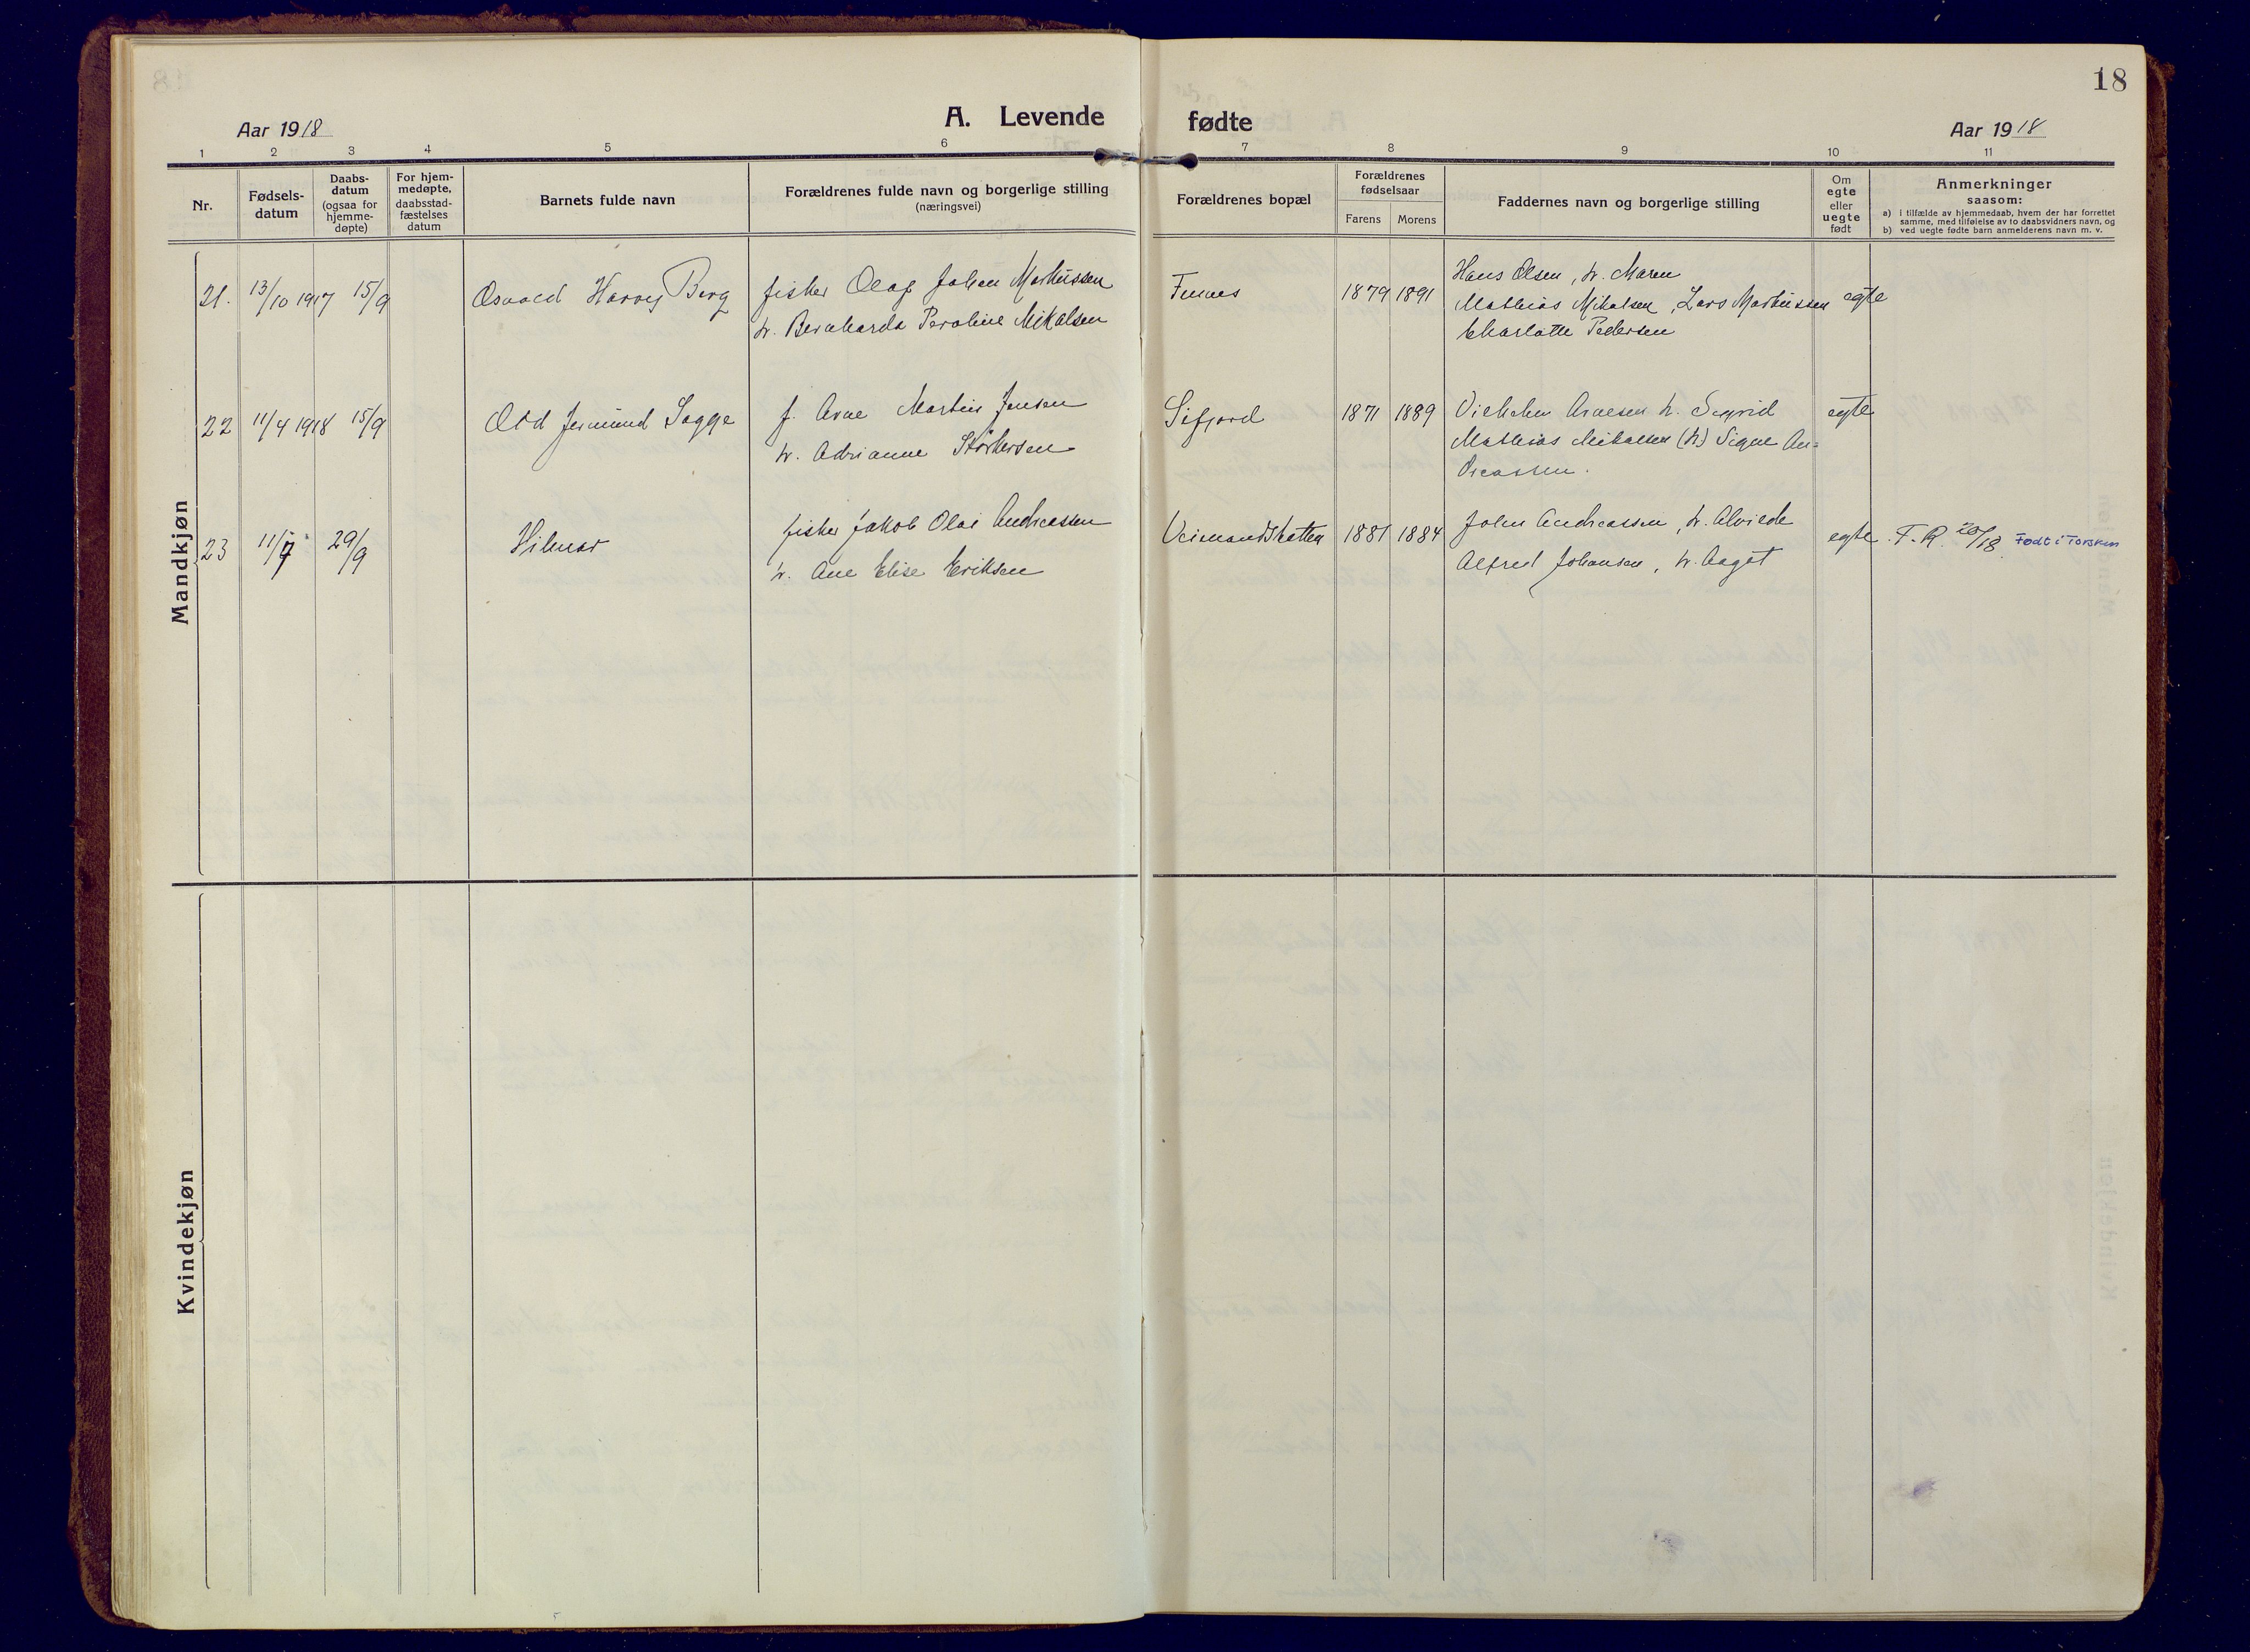 18
Aar 1918
A. Levende fødte
Aar 1918
1 2 3 4 5 6 7 8 9 10 11
Nr.
Fødsels-
datum
Daabs-
datum
(ogsaa for
hjemme-
døpte)
For hjem-
medøpte,
daabsstad-
fæstelses
datum
Barnets fulde navn
Forældrenes fulde navn og borgerlige stilling
(næringsvei)
Forældrenes bopæl
Forældrenes
fødselsaar
Farens Morens
Faddernes navn og borgerlige stilling
Om
egte
eller
uegte
født
Anmerkninger
saasom:
a) i tilfælde av hjemmedaab, hvem der har forrettet
samme, med tilføielse av to daabsvidners navn, og
b) ved uegte fødte barn anmelderens navn m. v.
Mandkjøn
21. 13/10 1917 15/9 Osvald Harry Berg
fisker Olaf Johan Markussen
h. Bernharda Peroline Mikalsen
1879 1891
Hans Olsen, h. Maren
Mathias Mikalsen, Lars Markussen
Charlotte Pedersen
egte
22 11/4 1918 15/9 Odd Jermund Sagge
f. Arne Martin Jensen
h. Adrianne Størkersen
Sifjord
1871 1889
Vilhelm Arnesen h. Sigrid
Mathias Mikalsen (h) Signe An=
dreassen.
egte
23 11/7 29/9 Hilmar
fisker Jakob Olai Andreassen
h. Ane Elise Eriksen
Veimandshatten
1881 1884
John Andreassen, h. Alvilde
Alfred Johansen, h. Aagot
egte. F. R. 20/18. Født i Torsken
Kvindekjøn